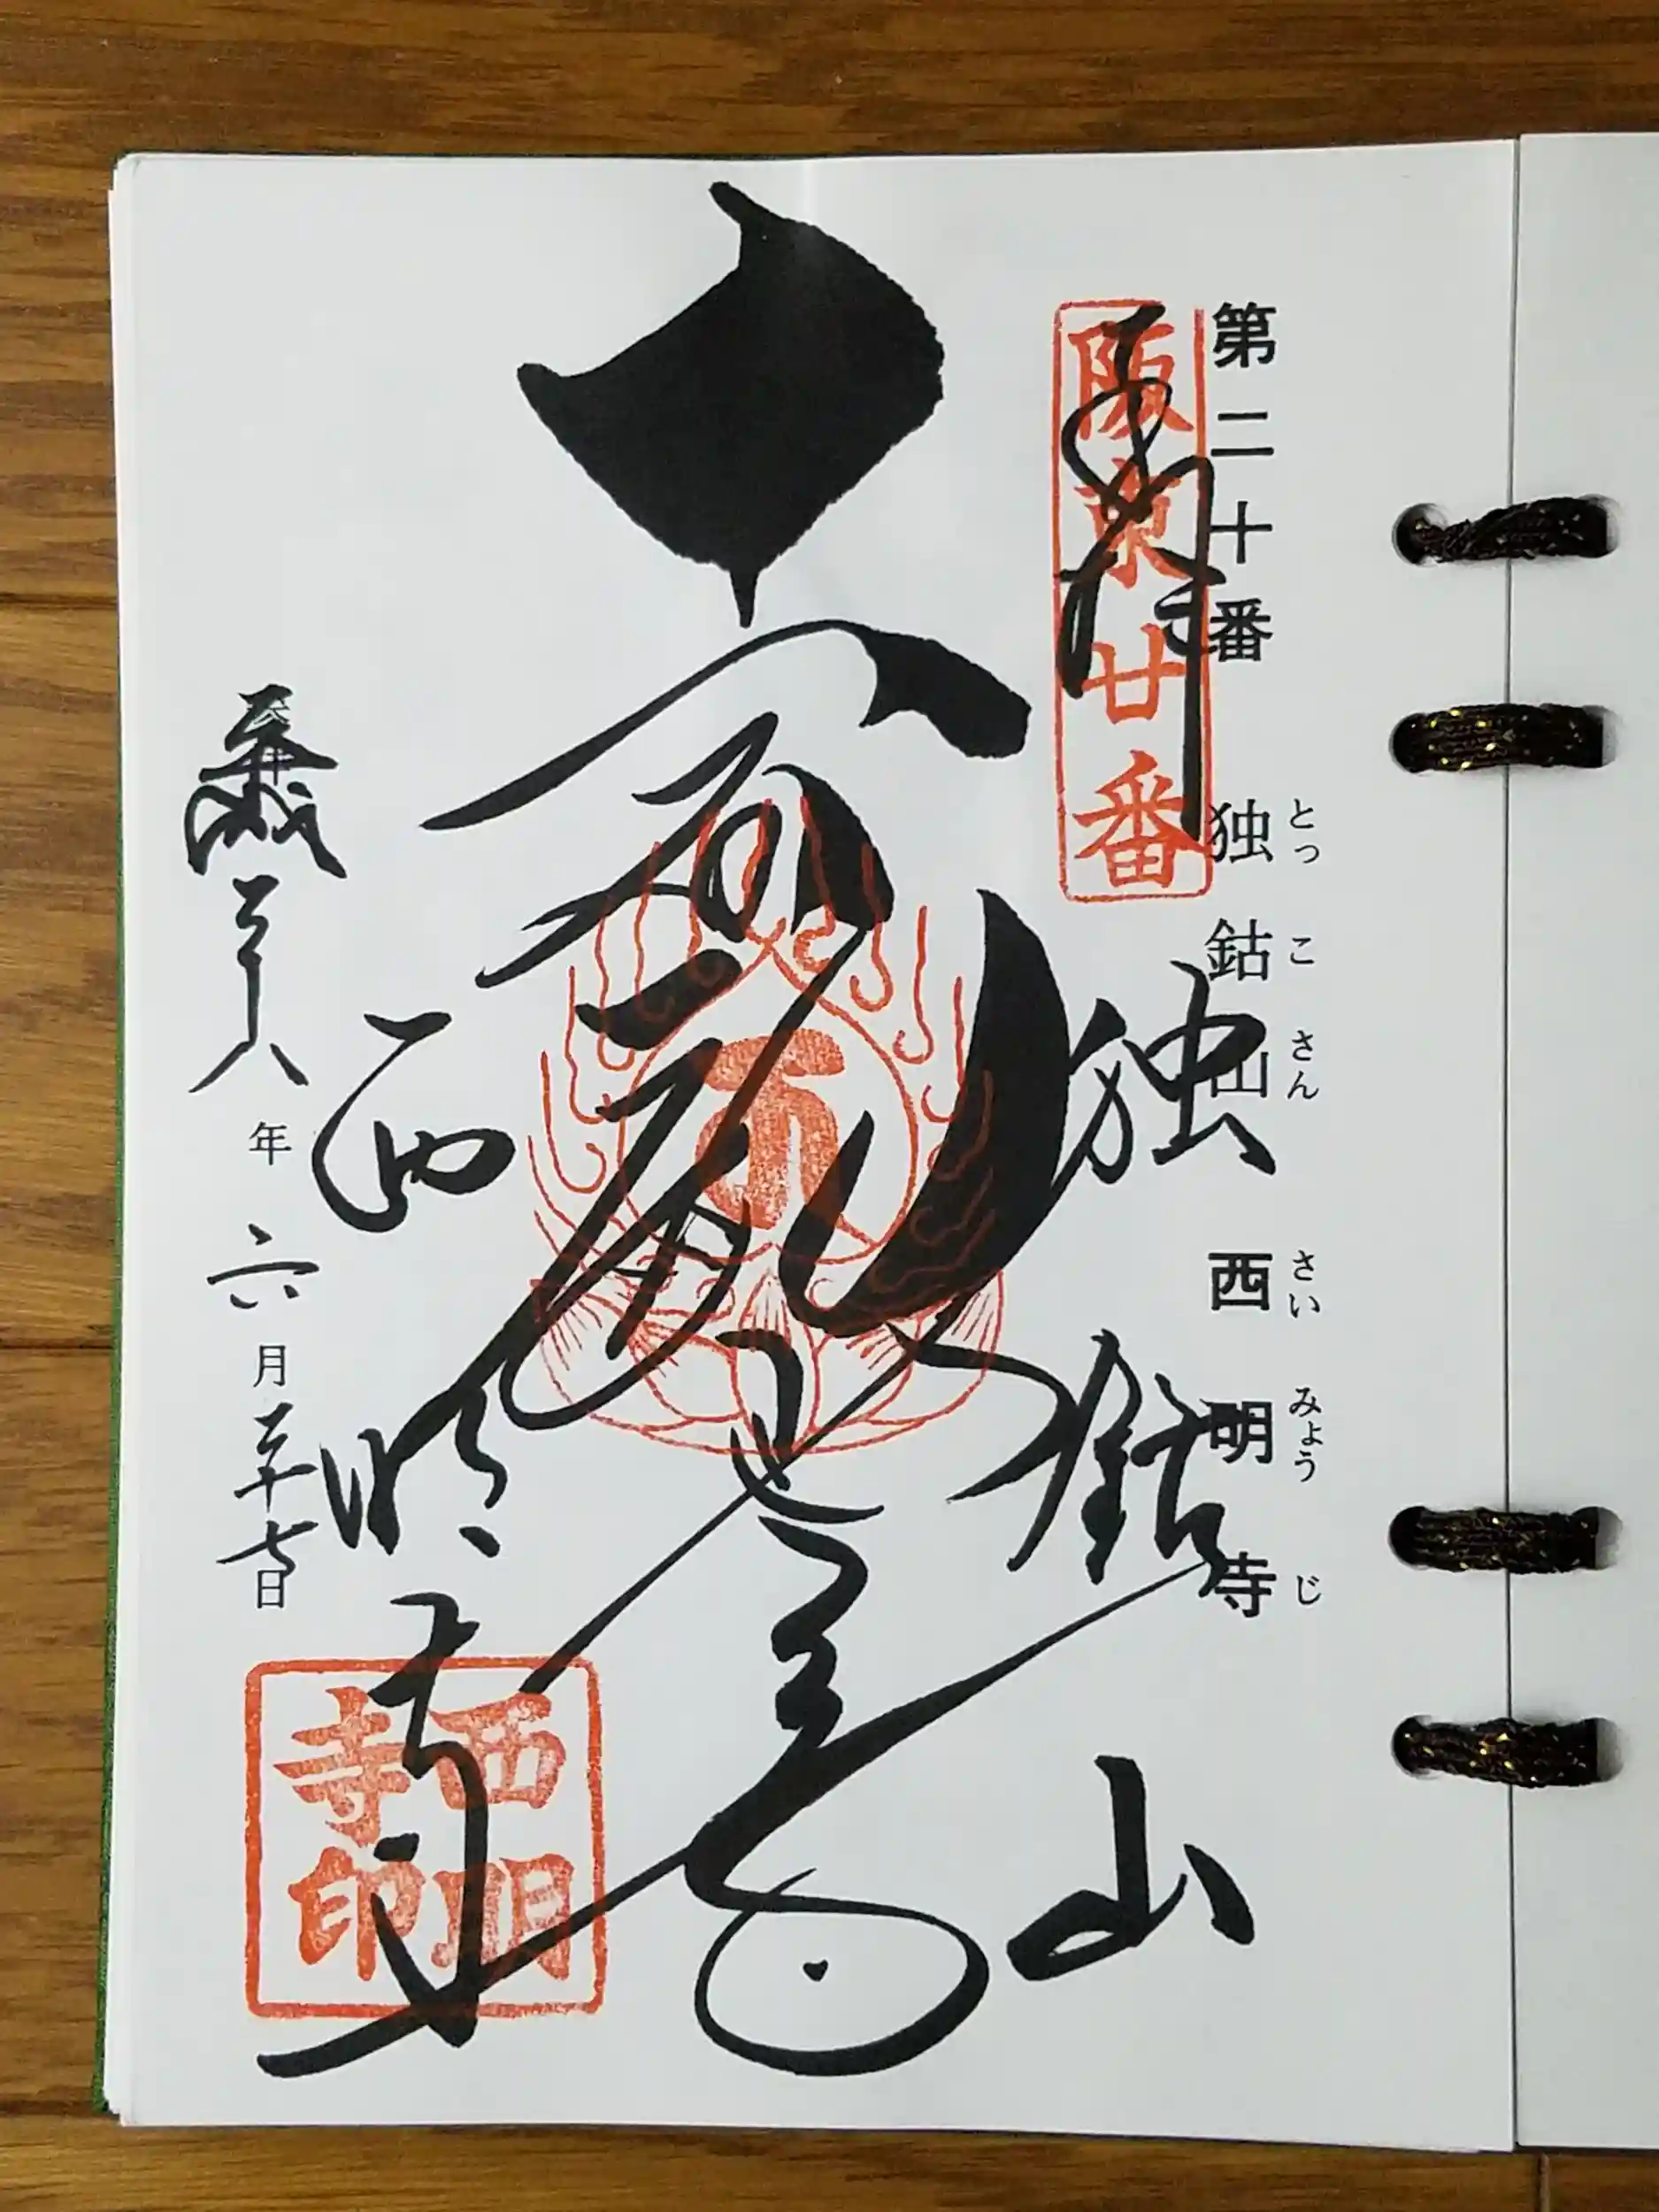 第二十番 独鈷山 西明寺
とっ こ さん さい みょう じ
阪東廿番
奉拝
独鈷山
西明寺
西明寺印
平成二十八年六月二十七日